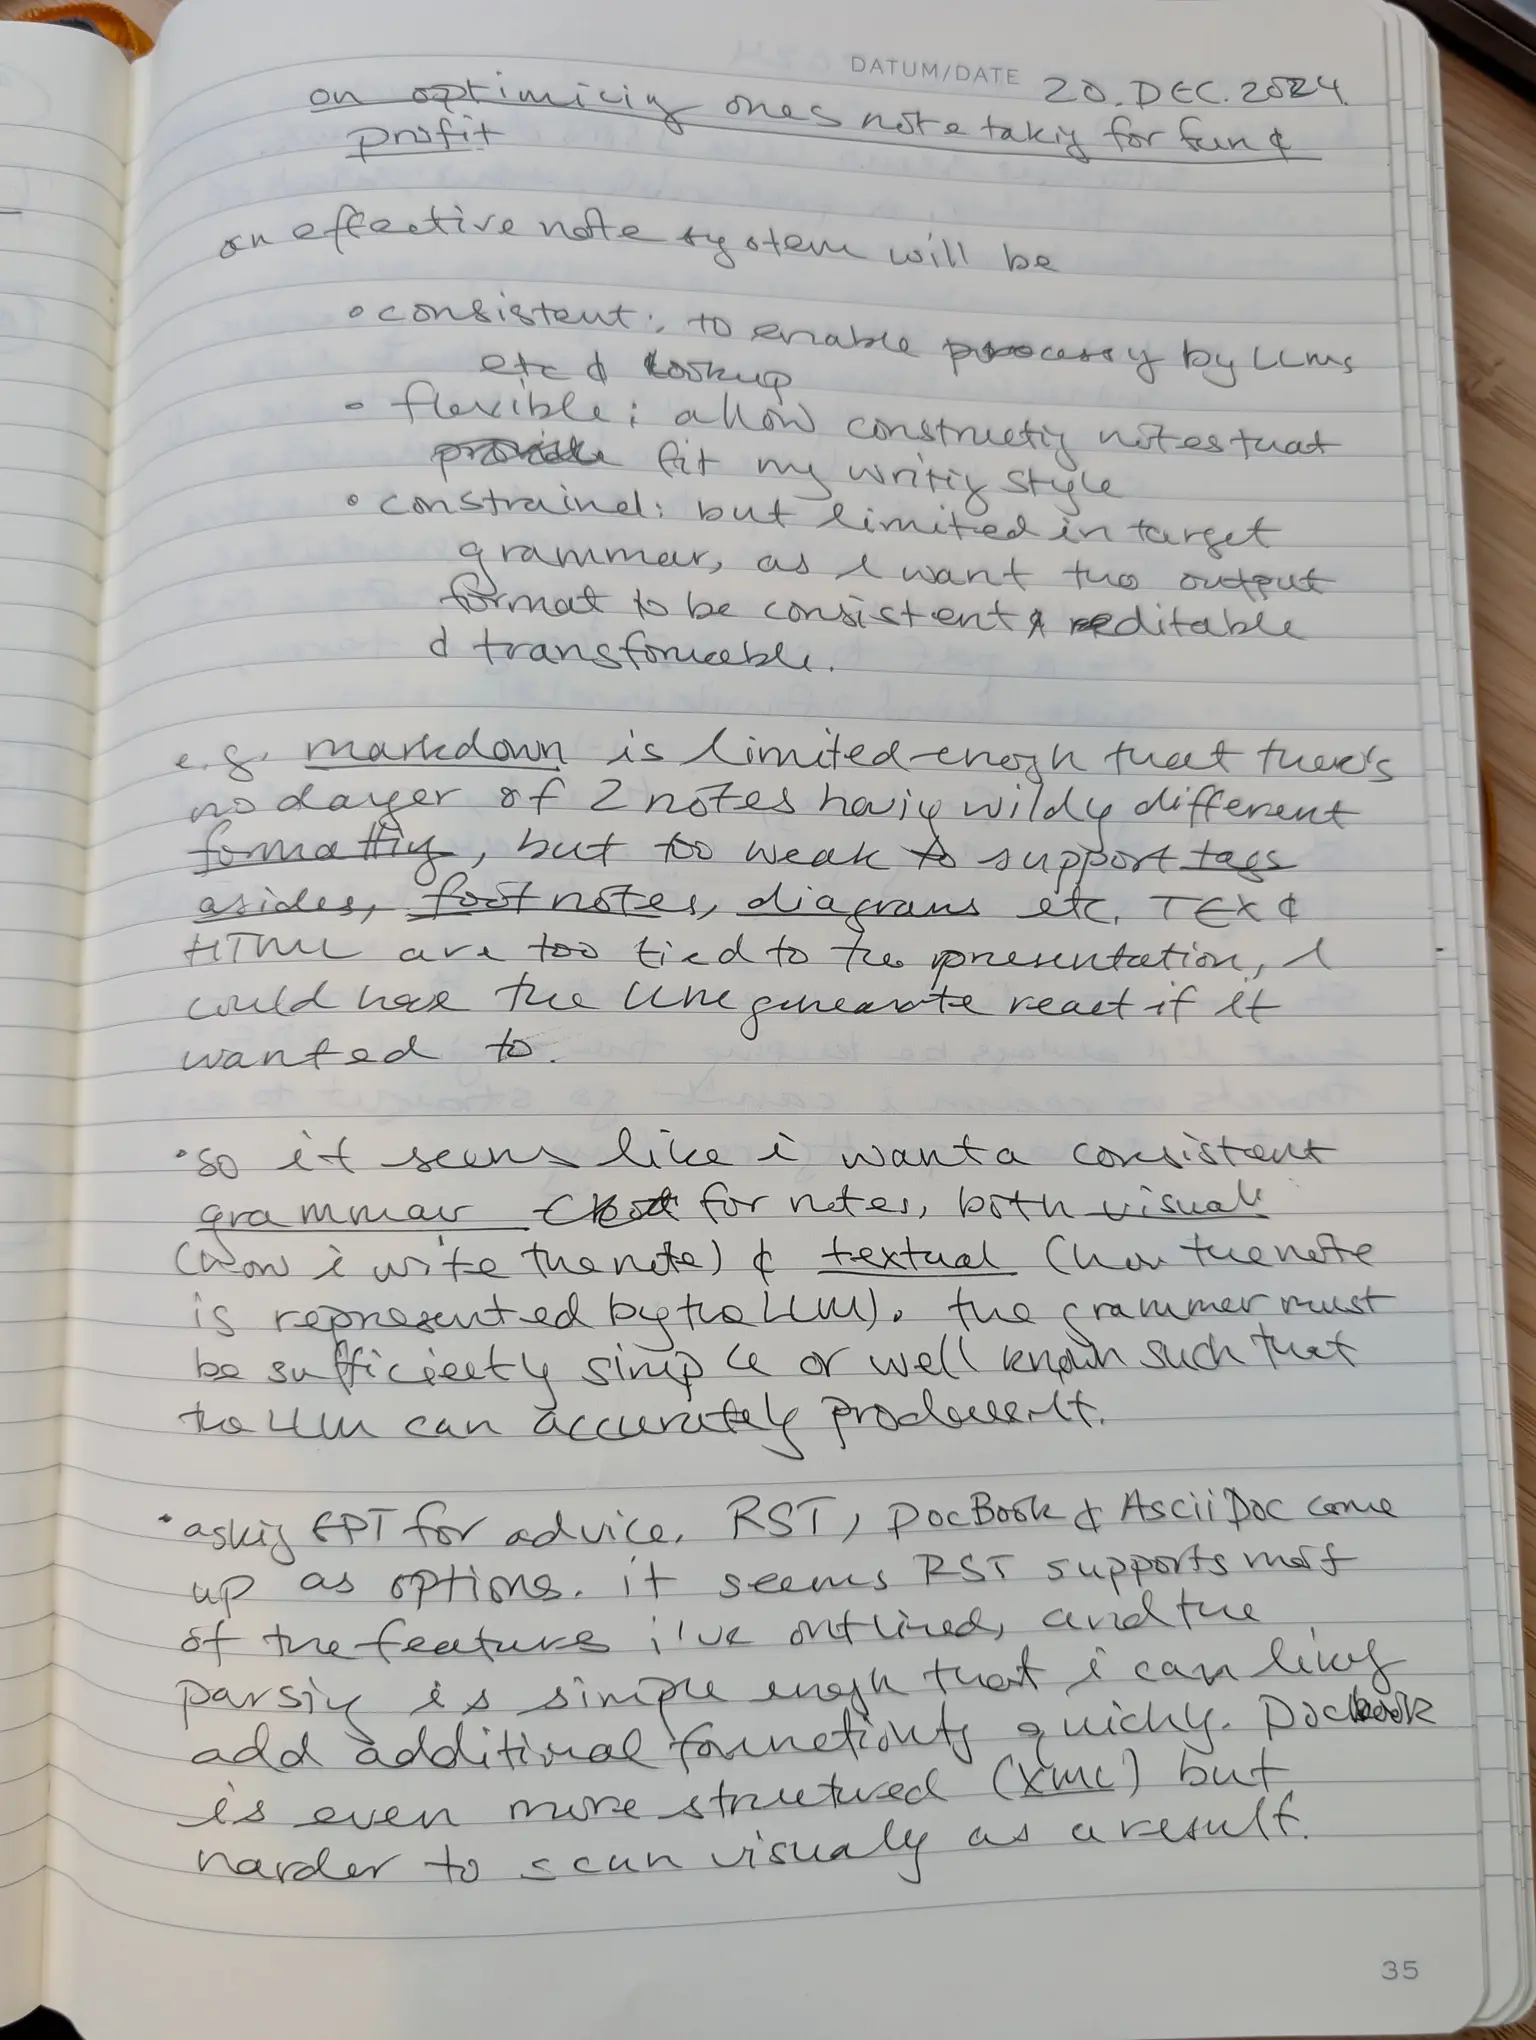 DATUM/DATE 20. DEC. 2024
on optimizing ones note taking for fun &
profit
an effective note system will be
• consistent: to enable processing by LLMs
etc & lookup
• flexible: allow constructing notes that
fit my writing style
• constrained: but limited in target
grammar, as I want the output
format to be consistent & editable
& transformable.
e.g. markdown is limited enough that there's
no danger of 2 notes having wildly different
formatting, but too weak to support tags
asides, footnotes, diagrams etc. TEX &
HTML are too tied to the presentation, I
could have the LLM generate react if it
wanted to.
• so it seems like i want a consistent
grammar for notes, both visual
(how i write the note) & textual (how the note
is represented by the LLM). the grammer must
be sufficiently simple or well known such that
the LLM can accurately produce it.
• asking GPT for advice. RST, DocBook & AsciiDoc come
up as options. it seems RST supports most
of the features i've outlined, and the
parsing is simple enough that i can likely
add additional functionality quickly. Docbook
is even more structured (XML) but
harder to scan visually as a result.
35